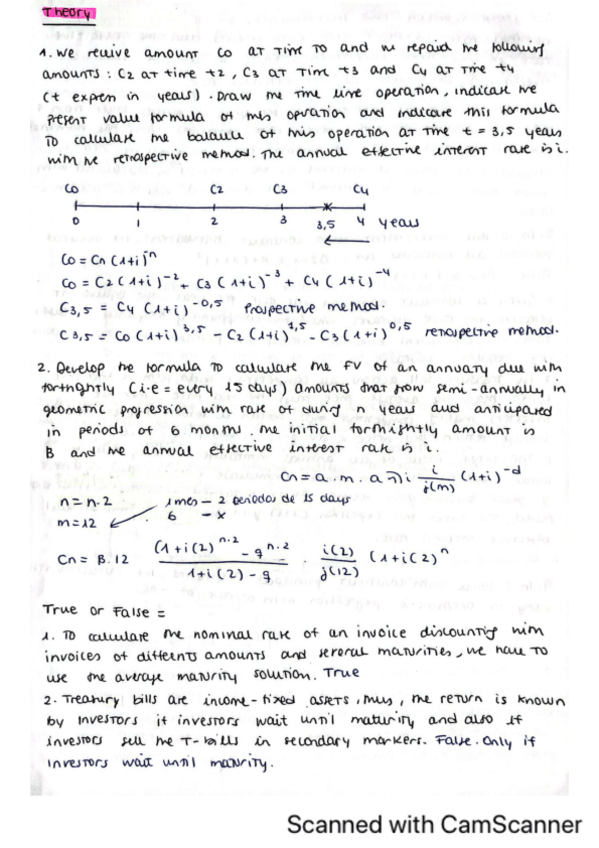 Theory
1. We receive amount C0 at time T0 and we repaid the following
amounts: C2 at time t2, C3 at time t3 and C4 at time t4
(t expren in years). Draw the time line operation, indicate the
present value formula of this operation and indicate this formula
to calculate the balance of this operation at time t = 3,5 years
with the retrospective method. The annual effective interest rate is i.
C0 C2 C3 C4
0 1 2 3 3,5 4 years
C0 = Cn (1+i)^n
C0 = C2 (1+i)^-2 + C3 (1+i)^-3 + C4 (1+i)^-4
C3,5 = C4 (1+i)^-0,5 Prospective method.
C3,5 = C0 (1+i)^3,5 - C2 (1+i)^1,5 - C3 (1+i)^0,5 retrospective method.
2. Develop the formula to calculate the FV of an annuity due with
fortnightly (i.e = every 15 days) amounts that grow semi-annually in
geometric progression with rate q during n years and anticipated
in periods of 6 months. The initial fortnightly amount is
B and the annual effective interest rate is i.
Cn = a . m . a n i i/j(m) (1+i)^-d
n = n.2 1 mes - 2 periodos de 15 days
m = 12 6 - x
Cn = B.12 (1+i(2))^n.2 - q^n.2 / 1+i(2) - q . i(2)/j(12) (1+i(2)^n
True or False =
1. To calculate the nominal rate of an invoice discounting with
invoices of differents amounts and several maturities, we have to
use the average maturity solution. True
2. Treasury bills are income-fixed assets, thus, the return is known
by investors if investors wait until maturity and also if
investors sell the T-bills in secondary markers. False. Only if
investors wait until maturity.
Scanned with CamScanner